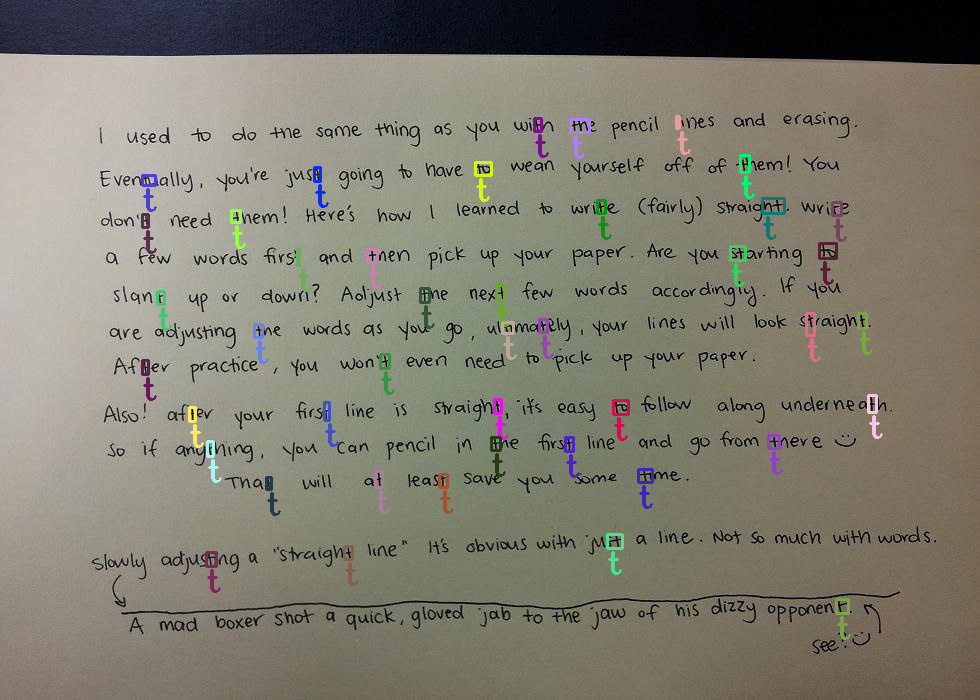 I used to do the same thing as you with the pencil lines and erasing.
Eventually, you're just going to have to wean yourself off of them! You
don't need them! Here's how I learned to write (fairly) straight. write
a few words first and then pick up your paper. Are you starting to
slant up or down? Adjust the next few words accordingly. If you
are adjusting the words as you go, ultimately, your lines will look straight.
After practice, you won't even need to pick up your paper.
Also! after your first line is straight, it's easy to follow along underneath.
so if anything, you can pencil in the first line and go from there :)
That will at least save you some time.
slowly adjusting a "straight line" It's obvious with just a line. Not so much with words.
A mad boxer shot a quick, gloved jab to the jaw of his dizzy opponent.
see! :)